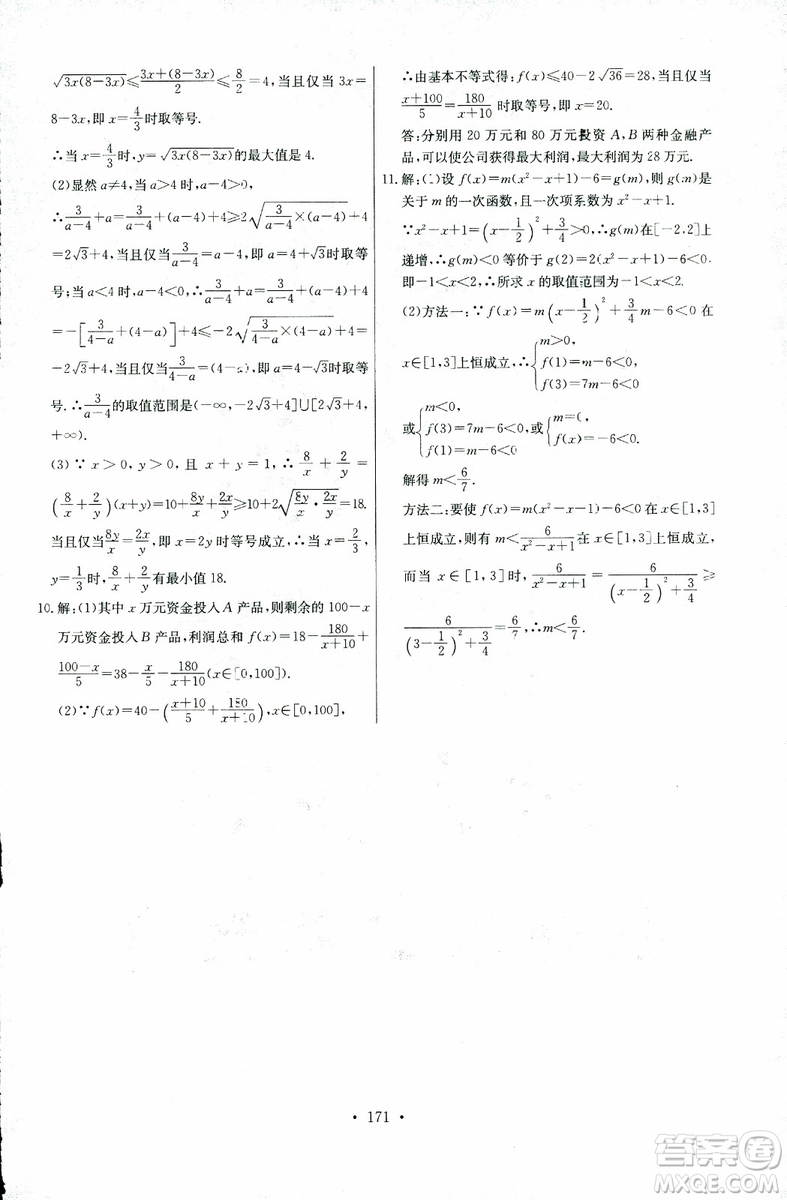 √3x(8-3x)≤(3x+(8-3x))/2≤8/2=4,当且仅当 3x=
8-3x,即 x=4/3时取等号.
∴当 x=4/3时,y=√3x(8-3x)的最大值是 4.
(2)显然 a≠4,当 a>4 时,a-4>0,
∴3/(a-4)+a=3/(a-4)+(a-4)+4≥2√(3/(a-4)×(a-4))+4
=2√3+4,当且仅当3/(a-4)=a-4,即 a=4+√3时取等
号;当 a<4 时,a-4<0,∴3/(a-4)+a=3/(a-4)+(a-4)+4
=-[3/(4-a)+(4-a)]+4≤-2√(3/(4-a)×(4-a))+4=
-2√3+4,当且仅当3/(4-a)=(4-a),即 a=4-√3时取等
号.∴3/(a-4)+a的取值范围是(-∞,-2√3+4]∪[2√3+4,
+∞).
(3)∵x>0,y>0,且 x+y=1,∴8/x+2/y=
(8/x+2/y)(x+y)=10+8y/x+2x/y≥10+2√(8y/x·2x/y)=18.
当且仅当8y/x=2x/y,即 x=2y 时等号成立,∴当 x=2/3,
y=1/3时,8/x+2/y有最小值 18.
10.解:(1)其中 x 万元资金投入 A 产品,则剩余的 100-x
万元资金投入 B 产品,利润总和 f(x)=18-180/(x+10)+
(100-x)/5=38-x/5-180/(x+10)(x∈[0,100]).
(2)∵f(x)=40-((x+10)/5+180/(x+10)),x∈[0,100],
∴由基本不等式得:f(x)≤40-2√36=28,当且仅当
(x+100)/5=180/(x+10)时取等号,即 x=20.
答:分别用 20 万元和 80 万元投资 A,B 两种金融产
品,可以使公司获得最大利润,最大利润为 28 万元.
11.解:(1)设 f(x)=m(x²-x+1)-6=g(m),则 g(m)是
关于 m 的一次函数,且一次项系数为 x²-x+1.
∵x²-x+1=(x-1/2)²+3/4>0,∴g(m)在[-2,2]上
递增,∴g(m)<0 等价于 g(2)=2(x²-x+1)-6<0,
即-1<x<2,∴所求 x 的取值范围为-1<x<2.
(2)方法一:∵f(x)=m(x-1/2)²+3/4m-6<0 在
x∈[1,3]上恒成立,∴{m>0, f(1)=m-6<0, f(3)=7m-6<0
或{m<0, f(3)=7m-6<0, f(1)=m-6<0,或{m=0, f(x)=-6<0,
解得 m<6/7.
方法二:要使 f(x)=m(x²-x-1)-6<0 在 x∈[1,3]
上恒成立,则有 m<6/(x²-x+1)在 x∈[1,3]上恒成立,
而当 x∈[1,3]时,6/(x²-x+1)=6/((x-1/2)²+3/4)≥
6/((3-1/2)²+3/4)=6/7,∴m<6/7.
• 171 •
答案圈
MXQE.COM